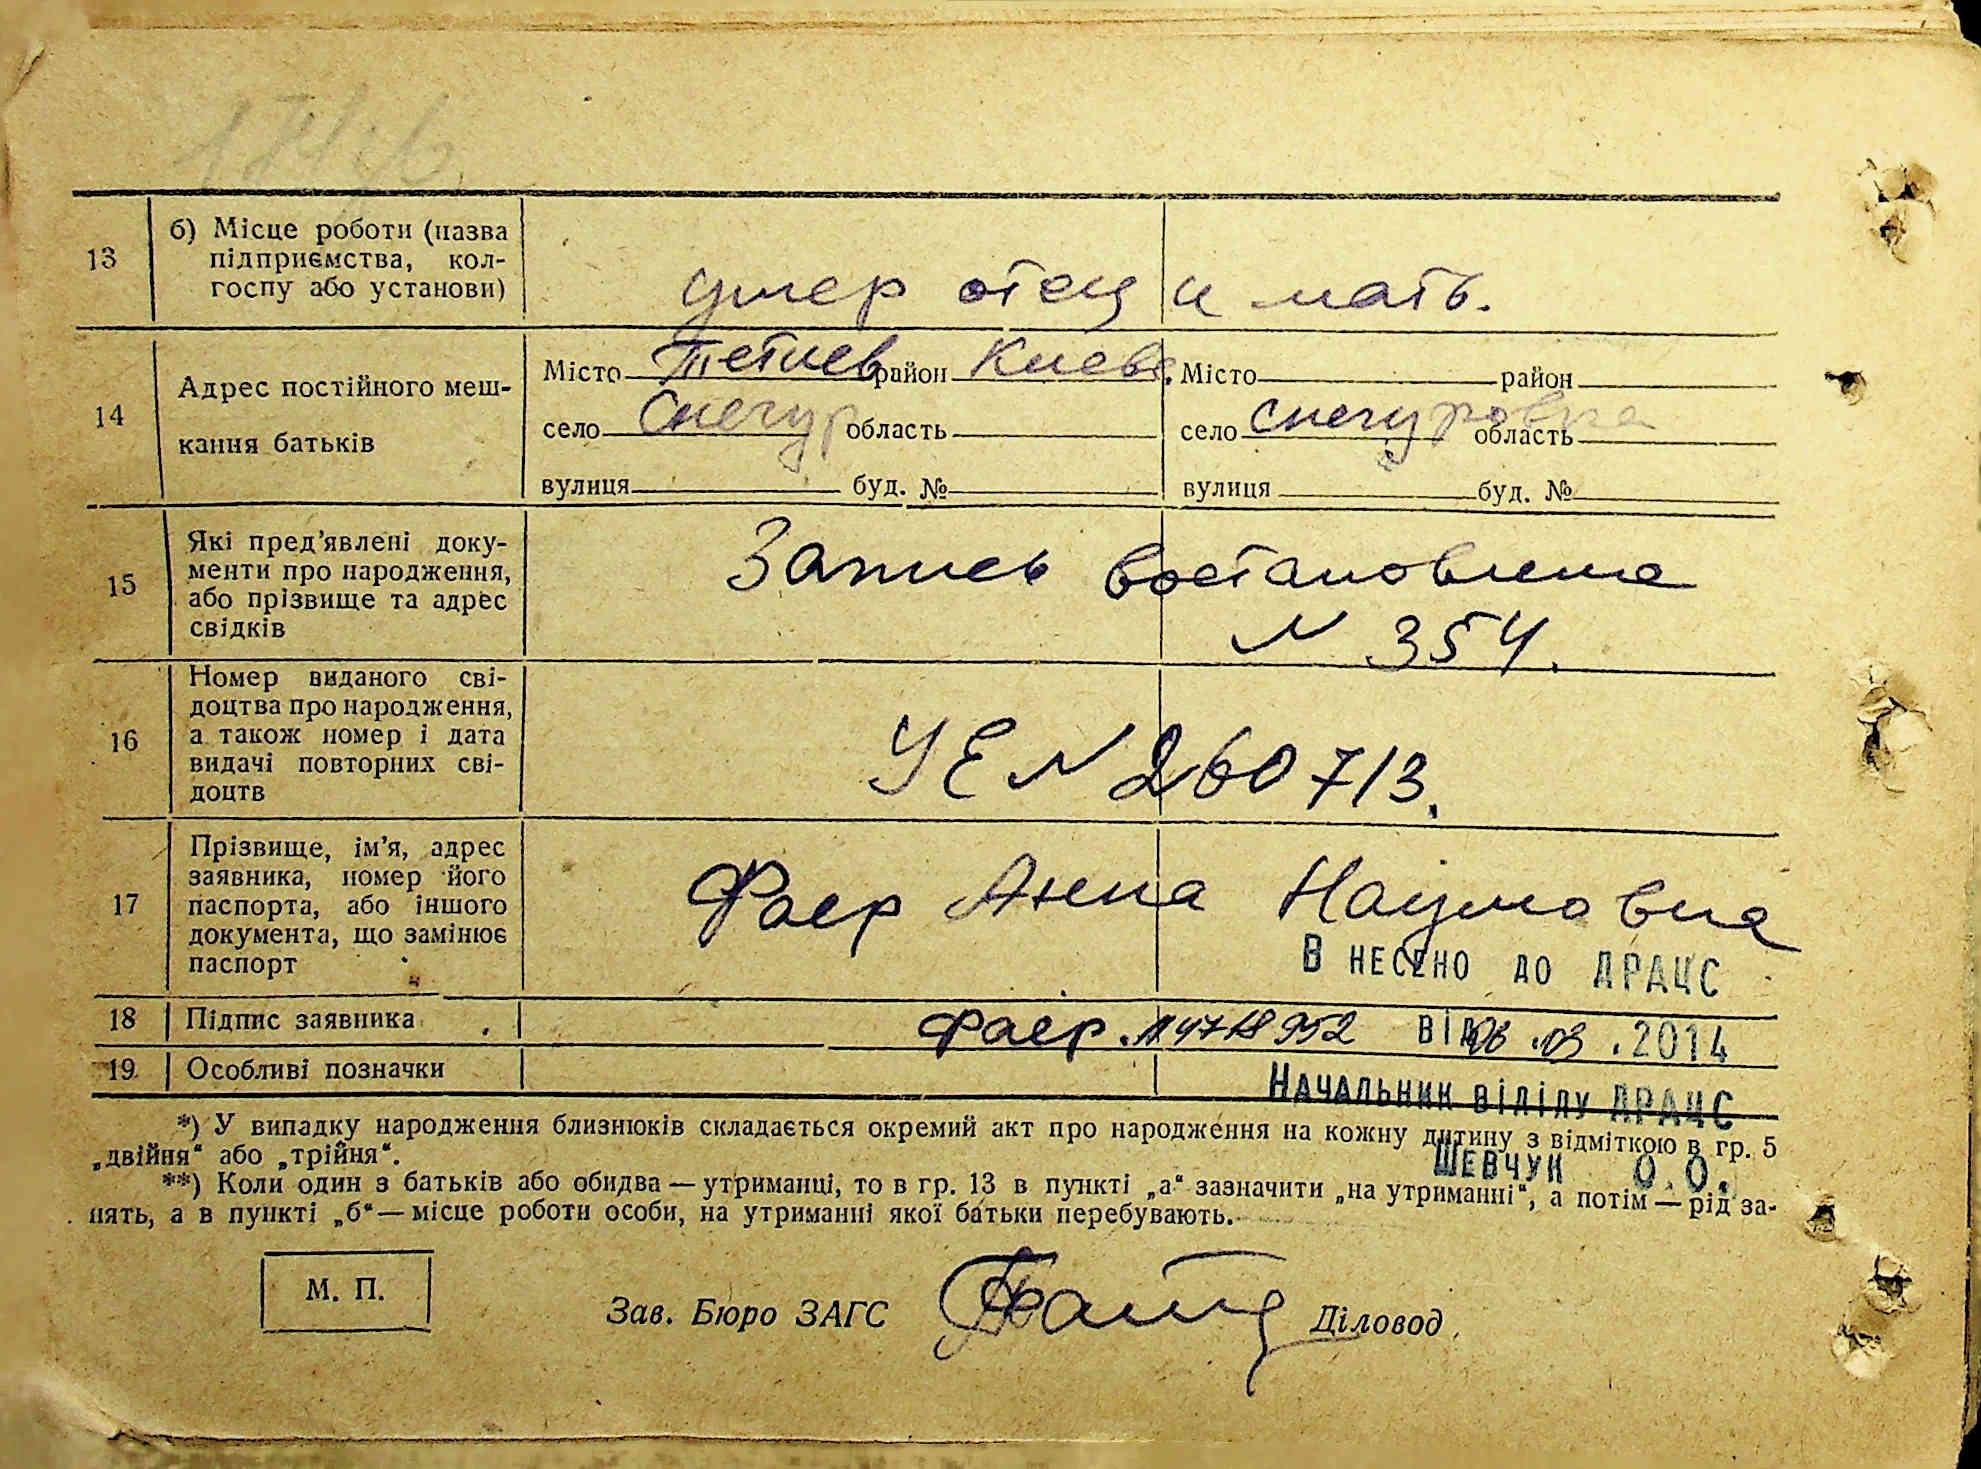 13
б) Місце роботи (назва
підприємства, кол-
госпу або установи)
умер отец и мать.
14
Адрес постійного меш-
кання батьків
Місто Тетиев район Киевс. Місто район
село Снегур область село Снегуровка область
вулиця буд. № вулиця буд. №
15
Які пред’явлені доку-
менти про народження,
або прізвище та адрес
свідків
Запись востановлена
N 354.
16
Номер виданого сві-
доцтва про народження,
а також номер і дата
видачі повторних сві-
доцтв
УЕ N 260713.
17
Прізвище, ім’я, адрес
заявника, номер його
паспорта, або іншого
документа, що замінює
паспорт
Фаер Анна Наумовна
ВНЕСЕНО ДО ДРАЦС
18 Підпис заявника Фаер. ВІД 06.03.2014
19. Особливі позначки
НАЧАЛЬНИК ВІДІЛУ ДРАЦС
*) У випадку народження близнюків складається окремий акт про народження на кожну дитину з відміткою в гр. 5
„двійня“ або „трійня“.
ШЕВЧУК О.О.
**) Коли один з батьків або обидва — утриманці, то в гр. 13 в пункті „а“ зазначити „на утриманні“, а потім — рід за-
нять, а в пункті „б“ — місце роботи особи, на утриманні якої батьки перебувають.
М. П.
Зав. Бюро ЗАГС Діловод